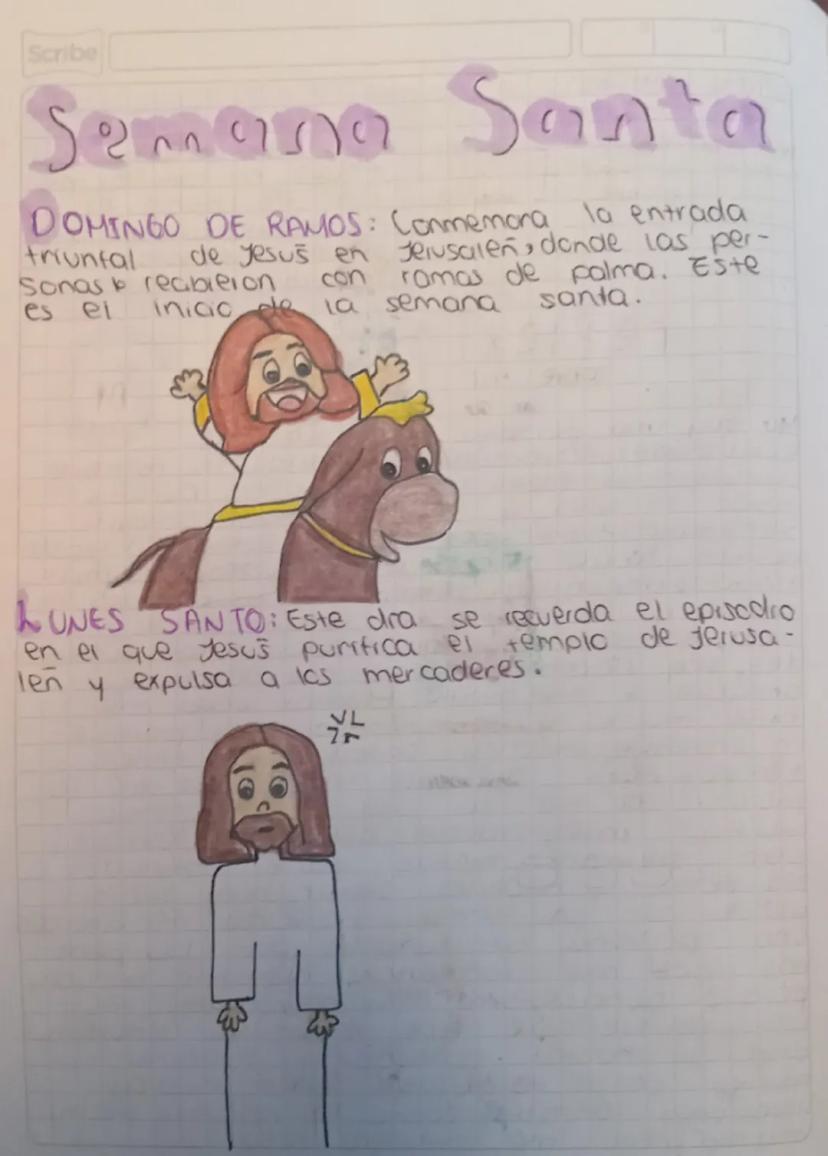 Scribe
Semana Santa
DOMINGO DE RAMOS: Conmemora la entrada
triunfal de Jesús en Jerusalén, donde las per-
sonas lo recibieron con ramas de palma. Este
es el inicio de la semana santa.
LUNES SANTO: Este dia se recuerda el episodio
en el que Jesús purifica el templo de Jerusa-
lén y expulsa a los mercaderes.